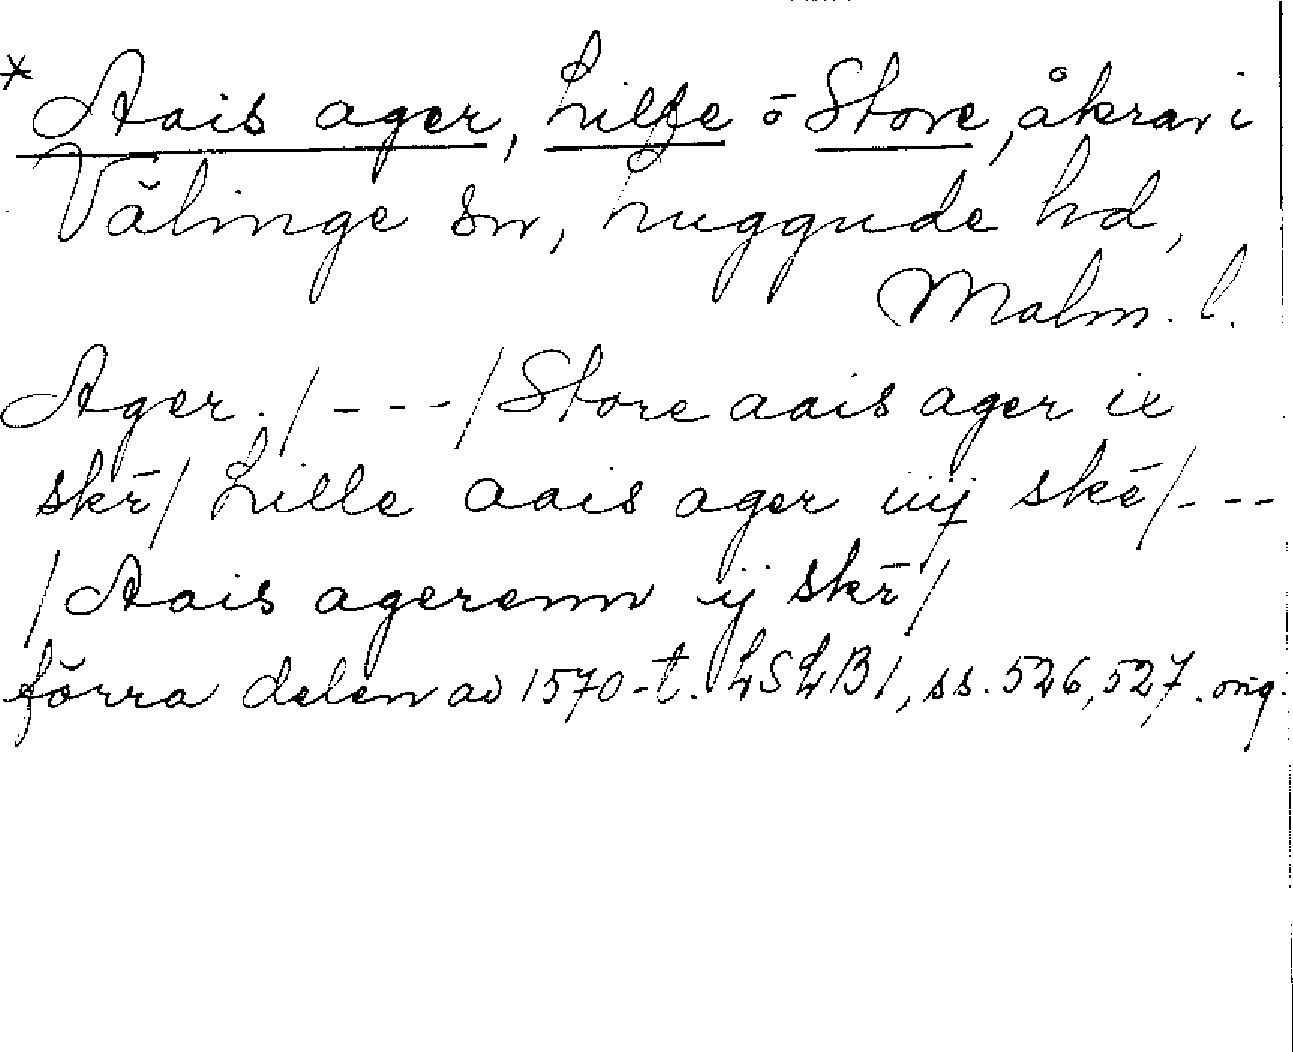 * Aais ager, Lille o Store, åkrar i
Välinge sn, Luggude hd,
Malm. l.
Ager. / - - - / Store aais ager ix
skr̄ / Lille aais ager iiij skē / - - -
/ Aais agerenn ij skr̄ /
förra delen av 1570-t. LSLB 1, ss. 526, 527. orig.